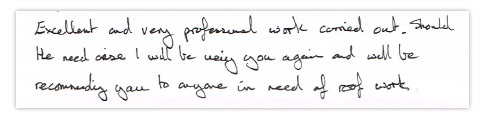 Excellent and very professional work carried out. Should
the need arise I will be using you again and will be
recommending you to anyone in need of roof work.